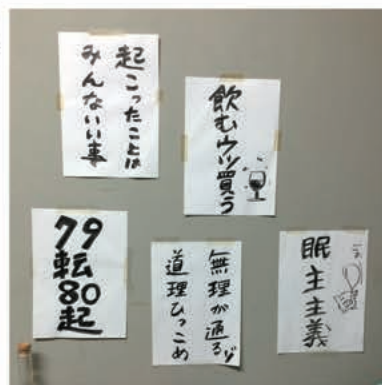 起こったことは
みんないい事
飲むウツ買う
79転80起
無理が通るゾ
道理ひっこめ
眠主主義